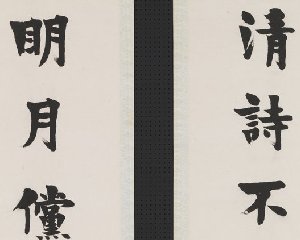 清詩不
明月儻